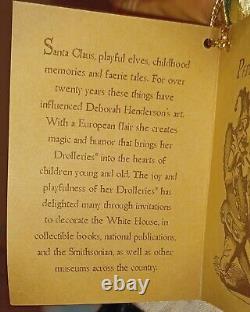 Santa Claus, playful elves, childhood
memories and faerie tales. For over
twenty years these things have
influenced Deborah Henderson's art.
With a European flair she creates
magic and humor that brings her
Drolleries® into the hearts of
children young and old. The joy and
playfulness of her Drolleries® has
delighted many through invitations
to decorate the White House, in
collectible books, national publications,
and the Smithsonian, as well as other
museums across the country.